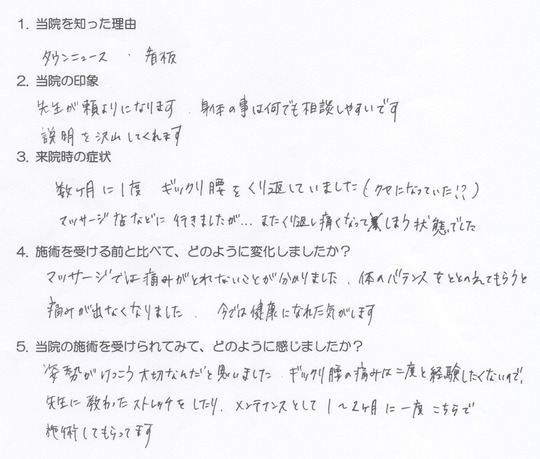 1. 当院を知った理由
タウンニュース ・ 看板
2. 当院の印象
先生が頼よりになります. 身体の事は何でも相談しやすいです
説明を沢山してくれます
3. 来院時の症状
数ヶ月に1度 ギックリ腰をくり返していました(クセになっていた!?)
マッサージ店などに行きましたが… またくり返し痛くなってしまう状態でした
4. 施術を受ける前と比べて、どのように変化しましたか?
マッサージでは痛みがとれないことが分かりました. 体のバランスをととのえてもらうと
痛みが出なくなりました. 今では健康になれた気がします
5. 当院の施術を受けられてみて、どのように感じましたか?
姿勢がけっこう大切なんだと思いました. ギックリ腰の痛みは二度と経験したくないので、
先生に教わったストレッチをしたり、メンテナンスとして1〜2ヶ月に一度こちらで
施術してもらってます